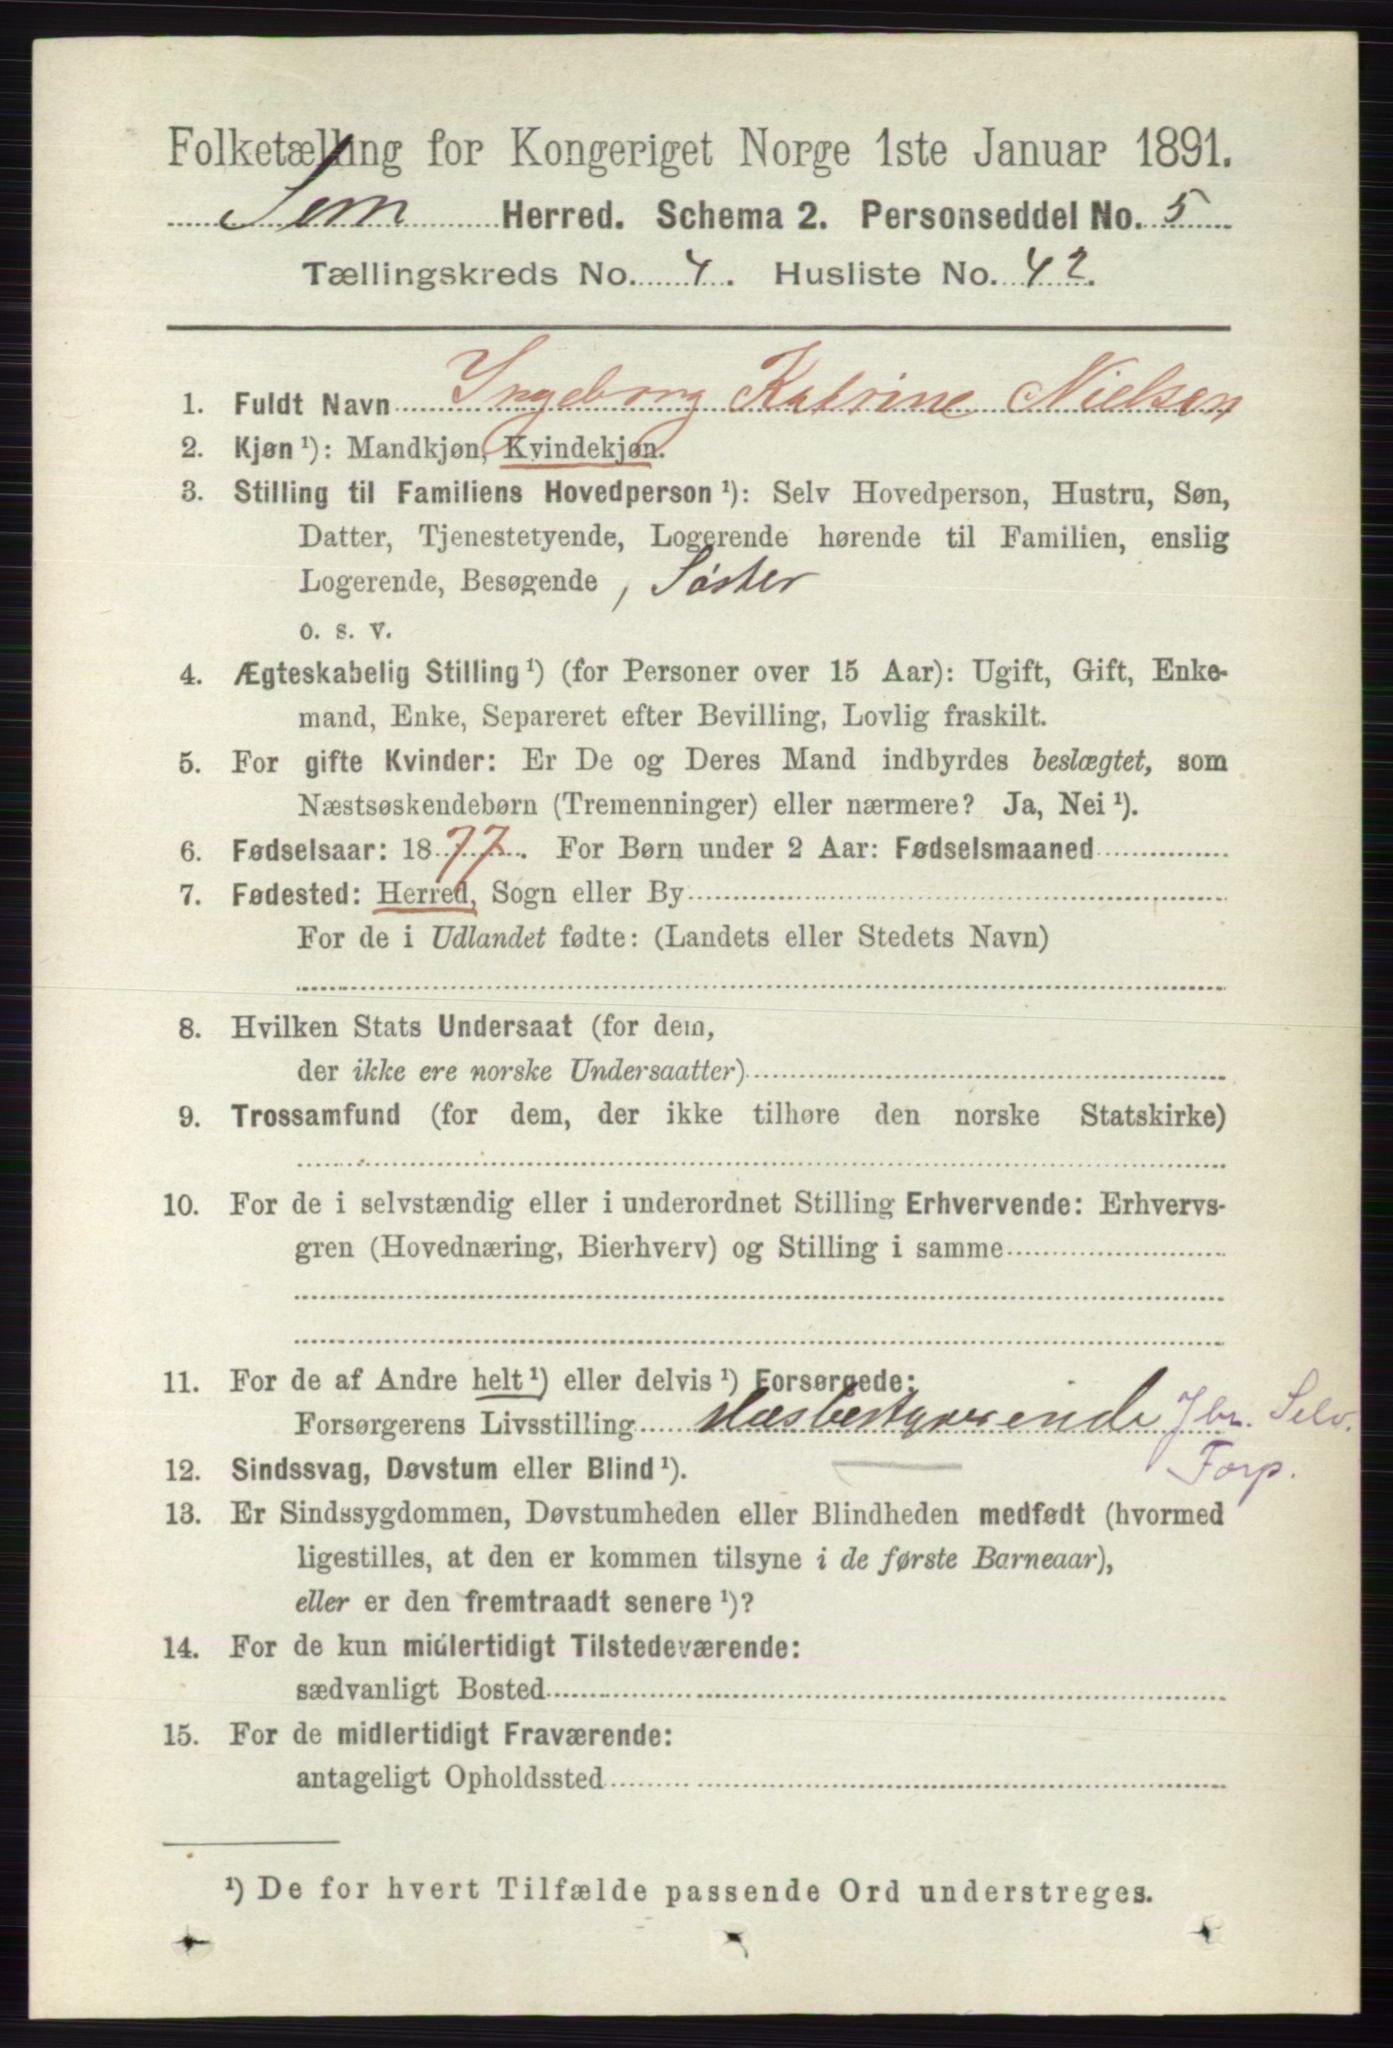 Folketælling for Kongeriget Norge 1ste Januar 1891.
Sem Herred. Schema 2. Personseddel No. 5
Tællingskreds No. 4. Husliste No. 42.
1. Fuldt Navn Ingeborg Katrine Nielsen
2. Kjøn ¹): Mandkjøn, Kvindekjøn.
3. Stilling til Familiens Hovedperson ¹): Selv Hovedperson, Hustru, Søn,
Datter, Tjenestetyende, Logerende hørende til Familien, enslig
Logerende, Besøgende, Søster
o. s. v.
4. Ægteskabelig Stilling ¹) (for Personer over 15 Aar): Ugift, Gift, Enke-
mand, Enke, Separeret efter Bevilling, Lovlig fraskilt.
5. For gifte Kvinder: Er De og Deres Mand indbyrdes beslægtet, som
Næstsøskendebørn (Tremenninger) eller nærmere? Ja, Nei ¹).
6. Fødselsaar: 1877. For Børn under 2 Aar: Fødselsmaaned
7. Fødested: Herred, Sogn eller By
For de i Udlandet fødte: (Landets eller Stedets Navn)
8. Hvilken Stats Undersaat (for dem,
der ikke ere norske Undersaatter)
9. Trossamfund (for dem, der ikke tilhøre den norske Statskirke)
10. For de i selvstændig eller i underordnet Stilling Erhvervende: Erhvervs-
gren (Hovednæring, Bierhverv) og Stilling i samme
11. For de af Andre helt ¹) eller delvis ¹) Forsørgede:
Forsørgerens Livsstilling Husbestyrerinde Jbr. Selv.
Forp.
12. Sindssvag, Døvstum eller Blind ¹).
13. Er Sindssygdommen, Døvstumheden eller Blindheden medfødt (hvormed
ligestilles, at den er kommen tilsyne i de første Barneaar),
eller er den fremtraadt senere ¹)?
14. For de kun midlertidigt Tilstedeværende:
sædvanligt Bosted
15. For de midlertidigt Fraværende:
antageligt Opholdssted
¹) De for hvert Tilfælde passende Ord understreges.